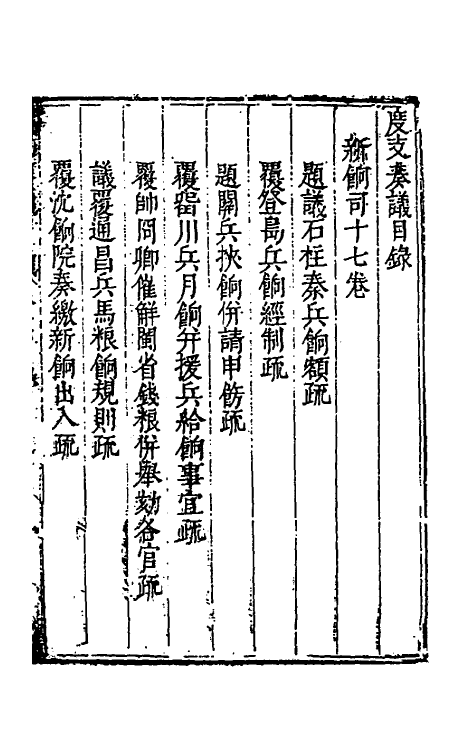 度支奏議目錄
新餉司十七卷
題議石柱秦兵餉額疏
覆登島兵餉經制疏
題關兵挾餉併請申飭疏
覆留川兵月餉并援兵給餉事宜疏
覆帥冏卿催解閩省錢粮併舉劾各官疏
議覆通昌兵馬粮餉規則疏
覆沈餉院奏繳新餉出入疏